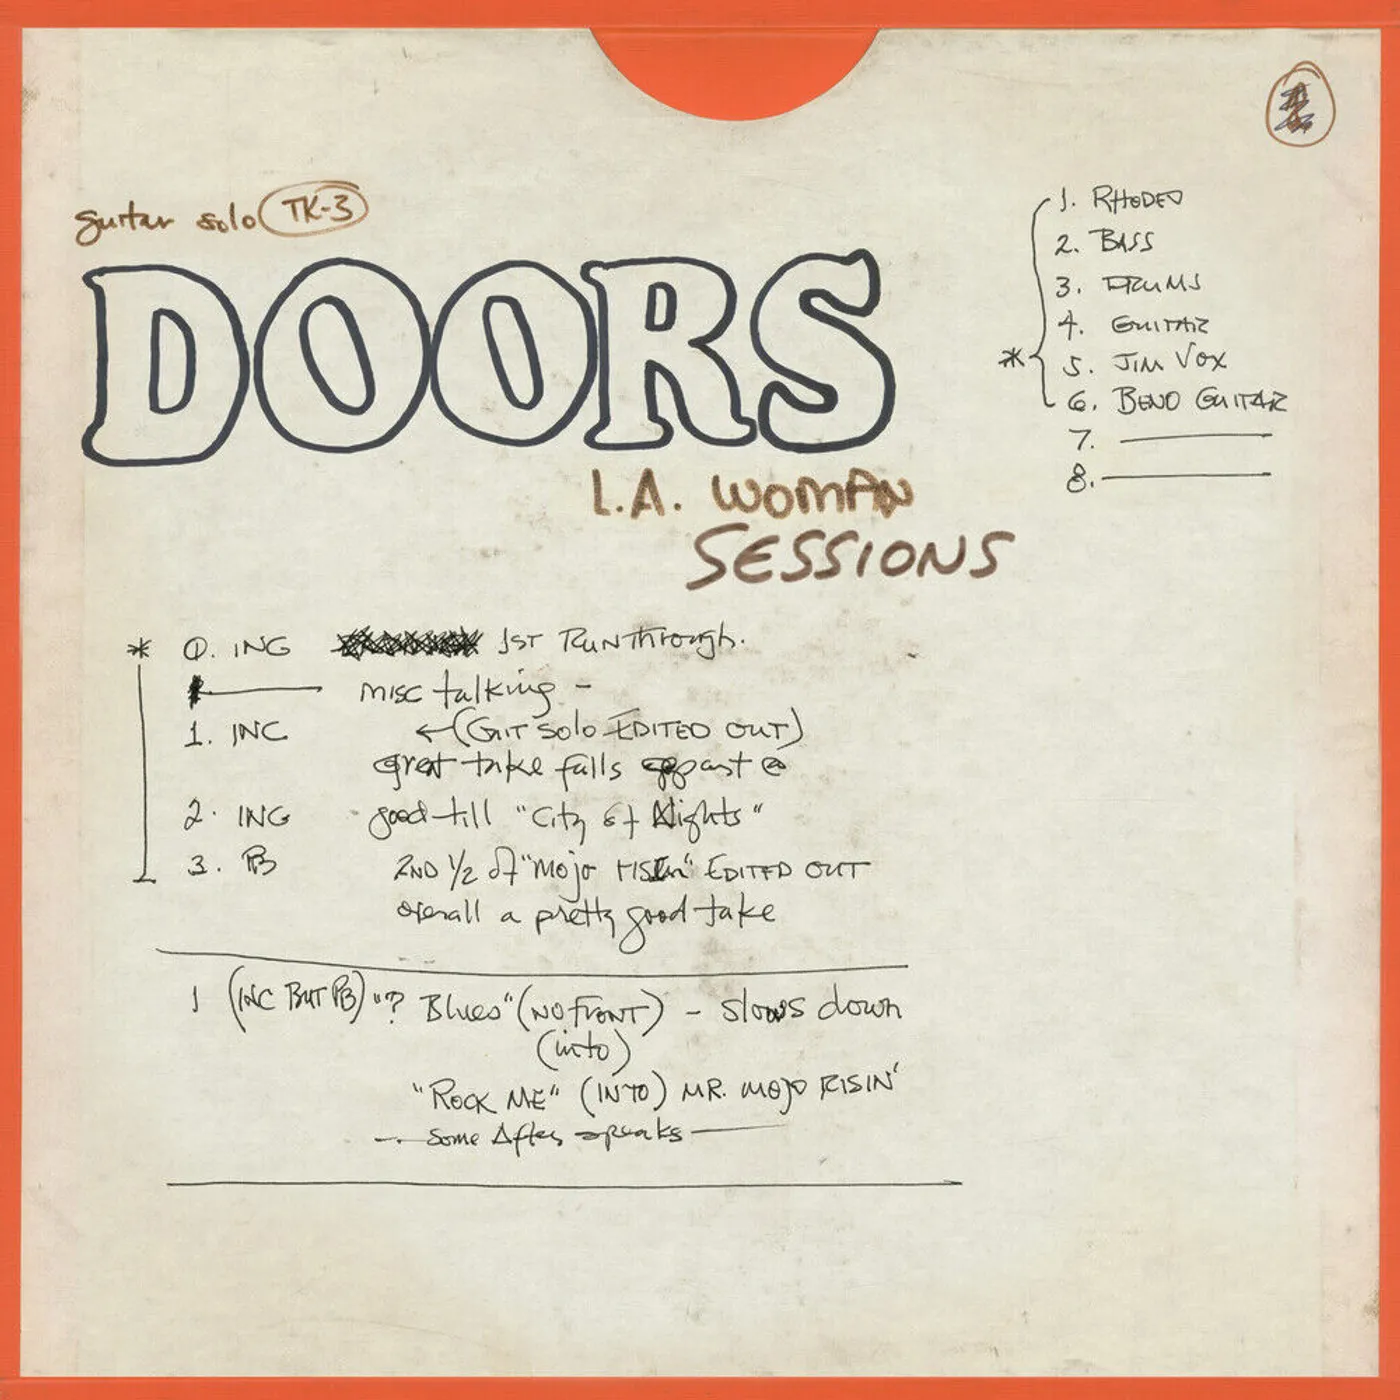 guitar solo TK-3
DOORS
L.A. WOMAN
SESSIONS
* 1. RHODES
2. BASS
3. DRUMS
4. GUITAR
5. JIM VOX
6. BENO GUITAR
7.
8.
* 0. ING 1ST RUNTHrough.
misc talking -
1. INC ←(GIT SOLO EDITED OUT)
great take falls apart @
2. ING good till "City of Nights"
3. PB 2ND 1/2 of "Mojo RISIn" EDITED OUT
overall a pretty good take
1 (INC BUT PB) "? Blues" (NO FRONT) - slows down
(into)
"ROCK ME" (INTO) MR. MOJO RISIN'
Some After speaks